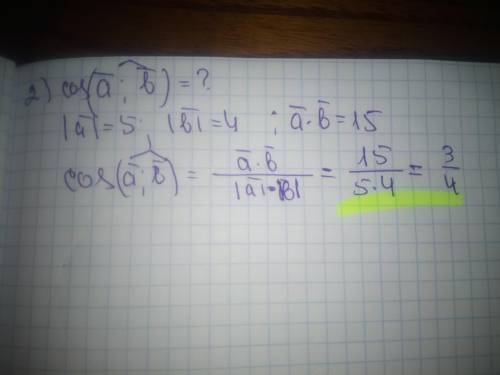 2) cos(a̅; b̅) = ?
|a̅| = 5; |b̅| = 4 ; a̅·b̅ = 15
cos(a̅; b̅) = a̅·b̅ / |a̅|·|b̅| = 15 / 5·4 = 3/4